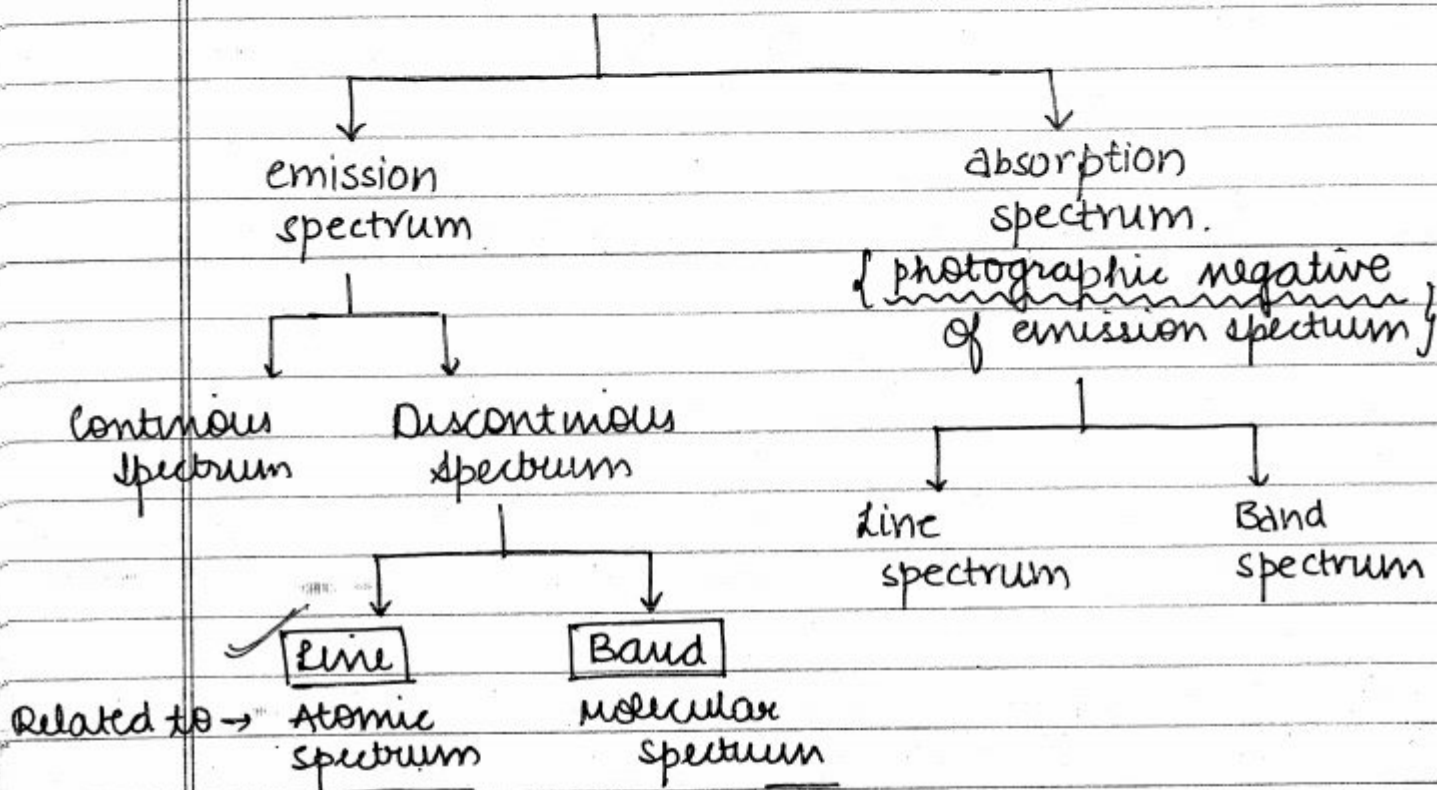 emission
spectrum
absorption
spectrum.
{ photographic negative
of emission spectrum }
Continous
spectrum
Discontinous
spectrum
Line
spectrum
Band
spectrum
Line
Band
Related to → Atomic
spectrum
Molecular
spectrum